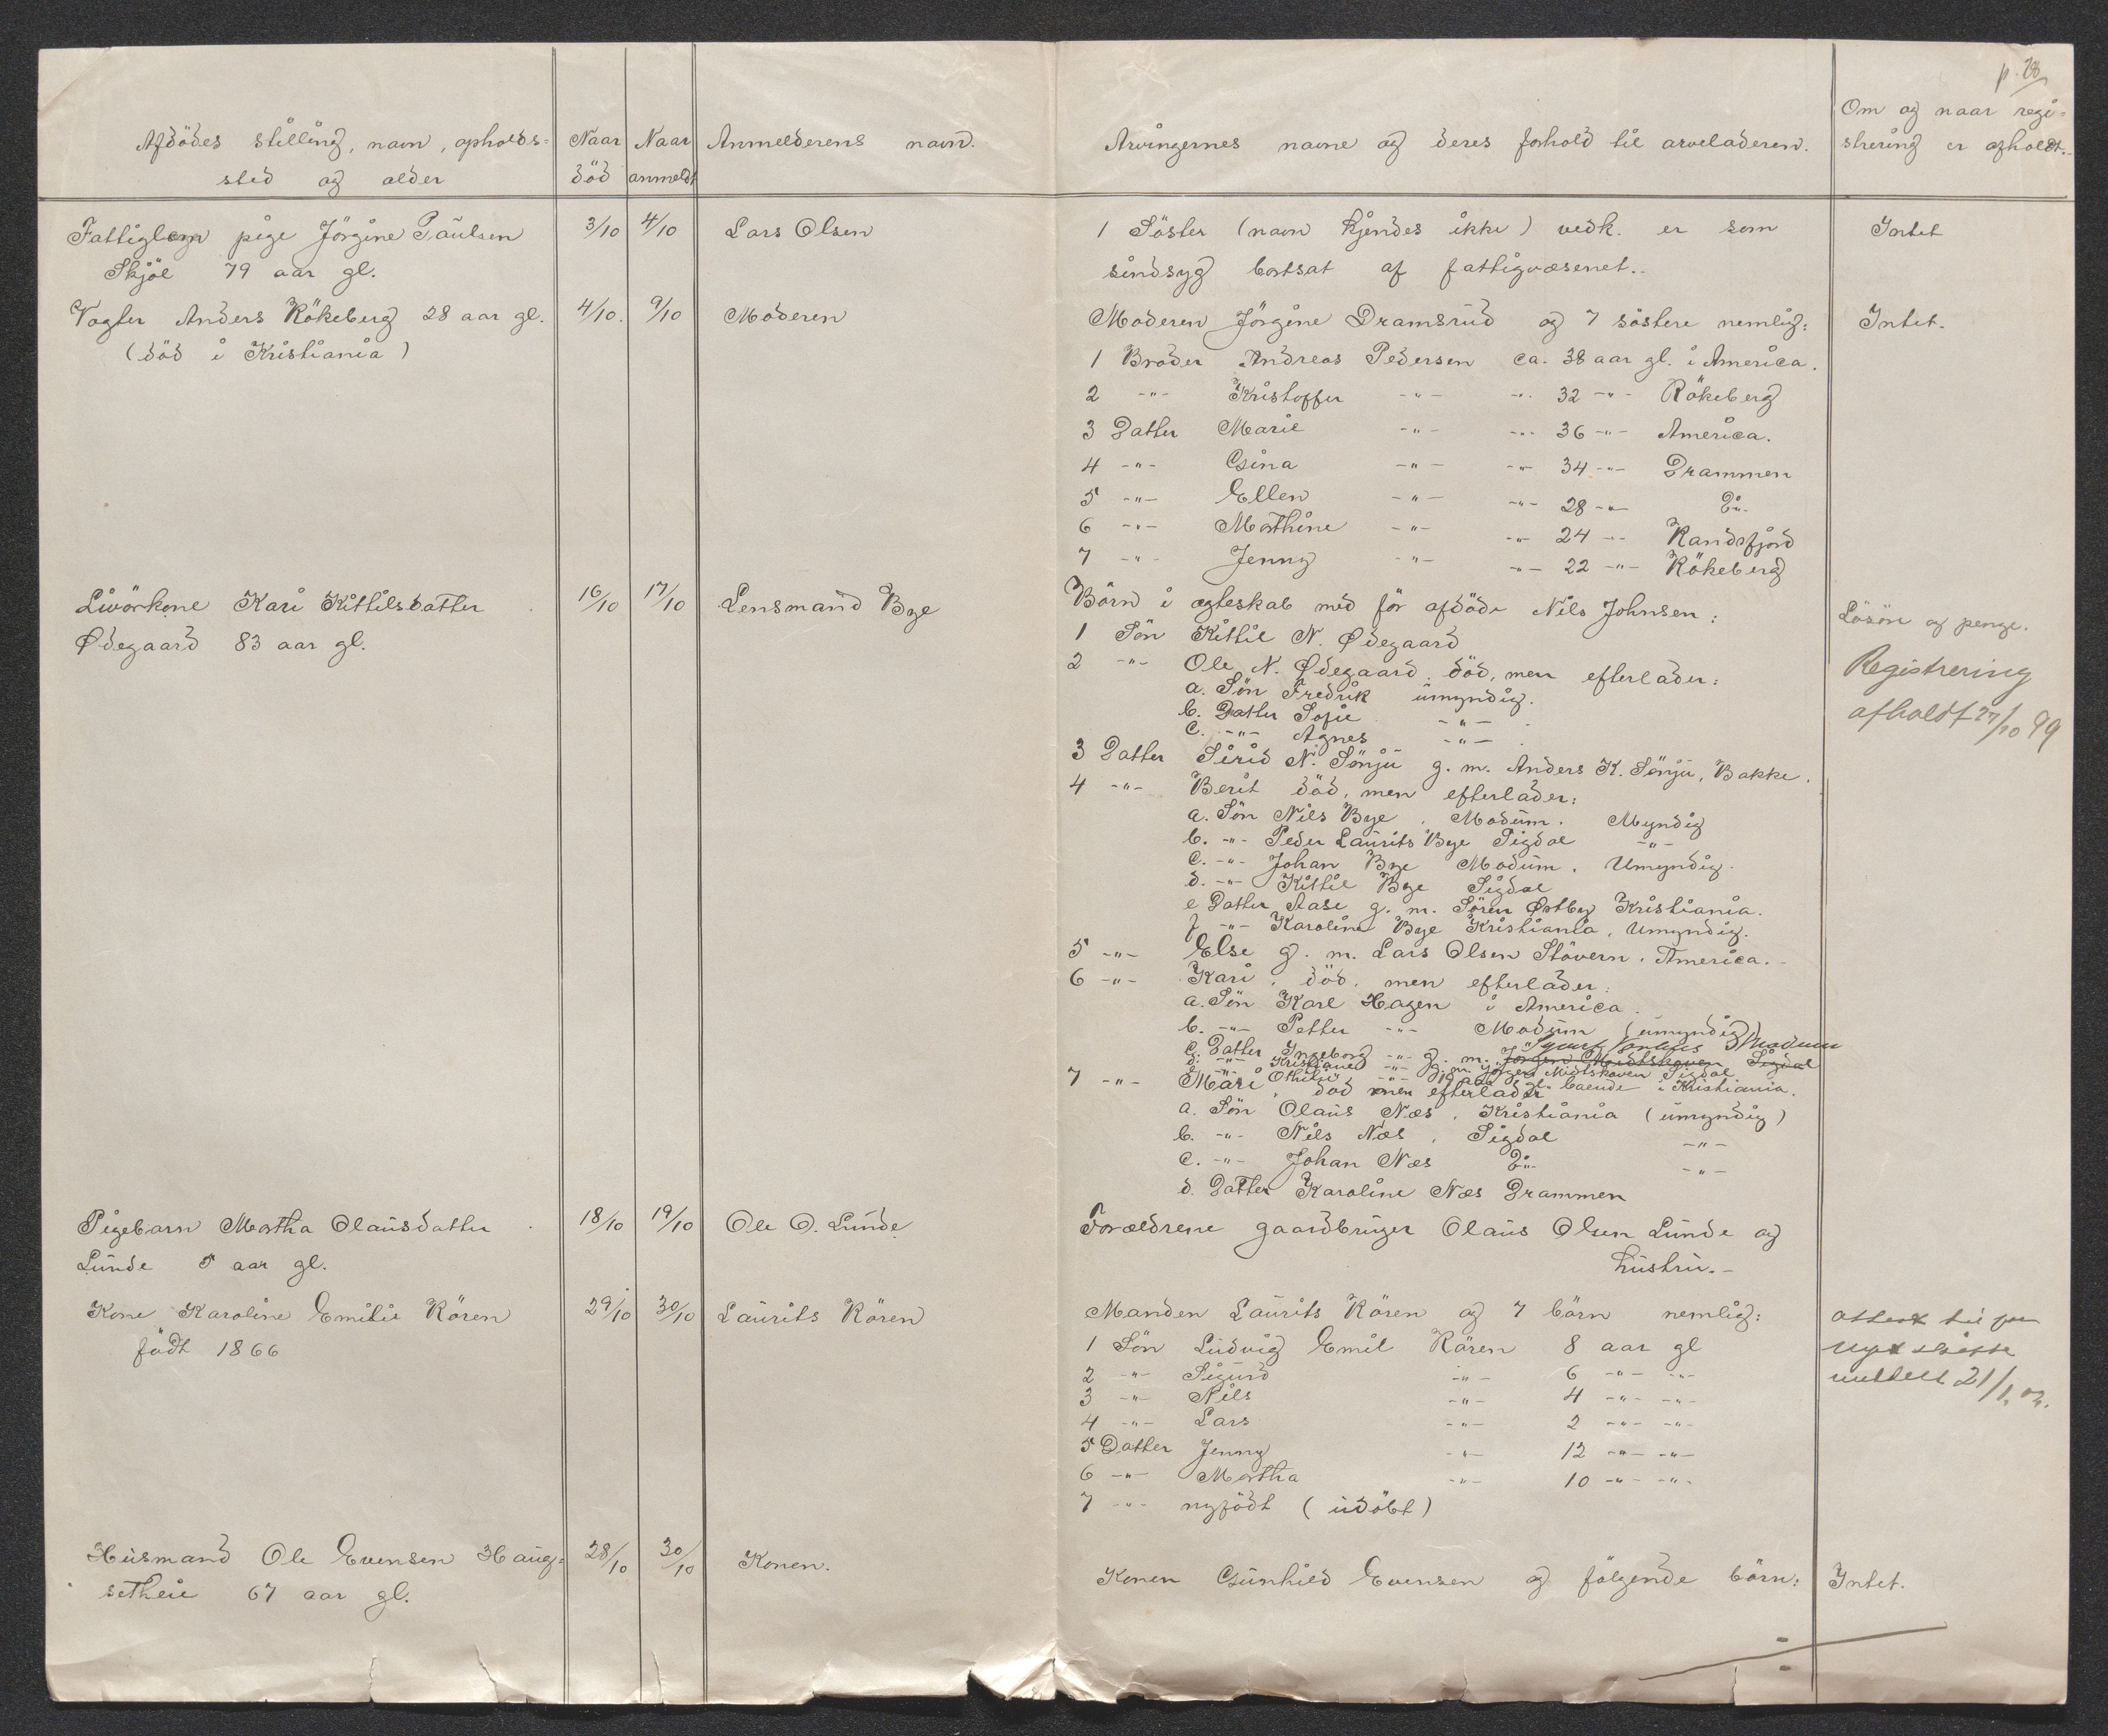 p. 78
Afdödes stilling, navn, opholds=
sted og alder
Naar
död
Naar
anmeldt
Anmelderens navn.
Arvingernes navne og deres forhold til arveladeren.
Om og naar regi=
strering er afholdt.
Fattiglem pige Jörgine Paulsen
Skjöl 79 aar gl.
3/10 4/10 Lars Olsen
1 Söster (navn kjendes ikke) vedk. er som
sindsyg bortsat af fattigvæsenet.
Intet
Vogter Anders Rökeberg 28 aar gl.
(död i Kristiania)
4/10. 9/10 Moderen
Moderen Jörgine Dramsrud og 7 söstere nemlig:
Intet.
1 Broder Andreas Pedersen ca. 38 aar gl. i America.
2 -"- Kristoffer -"- -"- 32 -"- Rökeberg
3 Datter Marie -"- -"- 36 -"- America.
4 -"- Gina -"- -"- 34 -"- Drammen
5 -"- Ellen -"- -"- 28 -"- Do.
6 -"- Mathine -"- -"- 24 -"- Randsfjord
7 -"- Jenny -"- -"- 22 -"- Rökeberg
Livörkone Kari Kittilsdatter
Ødegaard 83 aar gl.
16/10 17/10 Lensmand Bye
Börn i ægteskab med för afdöde Nils Johnsen:
Lösöre og penge.
Registrering
afholdt 27/10 99
1 Sön Kittil N. Ødegaard
2 -"- Ole N. Ødegaard död, men efterlader:
a. Sön Fredrik umyndig.
b. Datter Sofie -"-
c. -"- Agnes -"-
3 Datter Sirid N. Sönju g. m. Anders K. Sönju, Bakke.
4 -"- Berit död, men efterlader:
a. Sön Nils Bye, Modum. Myndig
b. -"- Peder Laurits Bye Sigdal -"-
c. -"- Johan Bye Modum. Umyndig.
d. -"- Kittil Bye Sigdal
e Datter Aase g. m. Sören Østby Kristiania.
f -"- Karoline Bye Kristiania, Umyndig.
5 -"- Else g. m. Lars Olsen Stövern. America.
6 -"- Kari, död, men efterlader:
a. Sön Karl Hagen i America
b. -"- Petter -"- Modum (umyndig)
c. Datter Ingeborg -"- g. m. Jörgen Midtskoven Sigdal
Modum
d. -"- Kristiane -"- g. m. Jörgen Midtskoven Sigdal
e. -"- Othilie -"- 19 aar gl. boende i Kristiania.
7 -"- Mari, död men efterlader
a. Sön Olaus Næs, Kristiania (umyndig)
b. -"- Nils Næs, Sigdal -"-
c. -"- Johan Næs Do. -"-
d. Datter Karoline Næs Drammen
Pigebarn Martha Olausdatter
Lunde 5 aar gl.
18/10 19/10 Ole O. Lunde
Forældrene gaardbruger Olaus Olsen Lunde og
hustru.-
Kone Karoline Emilie Rören
födt 1866
29/10 30/10 Laurits Rören
Manden Laurits Rören og 7 börn nemlig:
attest til
skifte
meddelt 21/1.02.
1 Sön Ludvig Emil Rören 8 aar gl
2 -"- Sigurd -"- 6 -"- -"-
3 -"- Nils -"- 4 -"- -"-
4 -"- Lars -"- 2 -"- -"-
5 Datter Jenny -"- 12 -"- -"-
6 -"- Martha -"- 10 -"- -"-
7 -"- nyfödt (udöbt)
Husmand Ole Evensen Haug=
setheie 67 aar gl.
28/10 30/10 Konen.
Konen Gunhild Evensen og fölgende börn:
Intet.